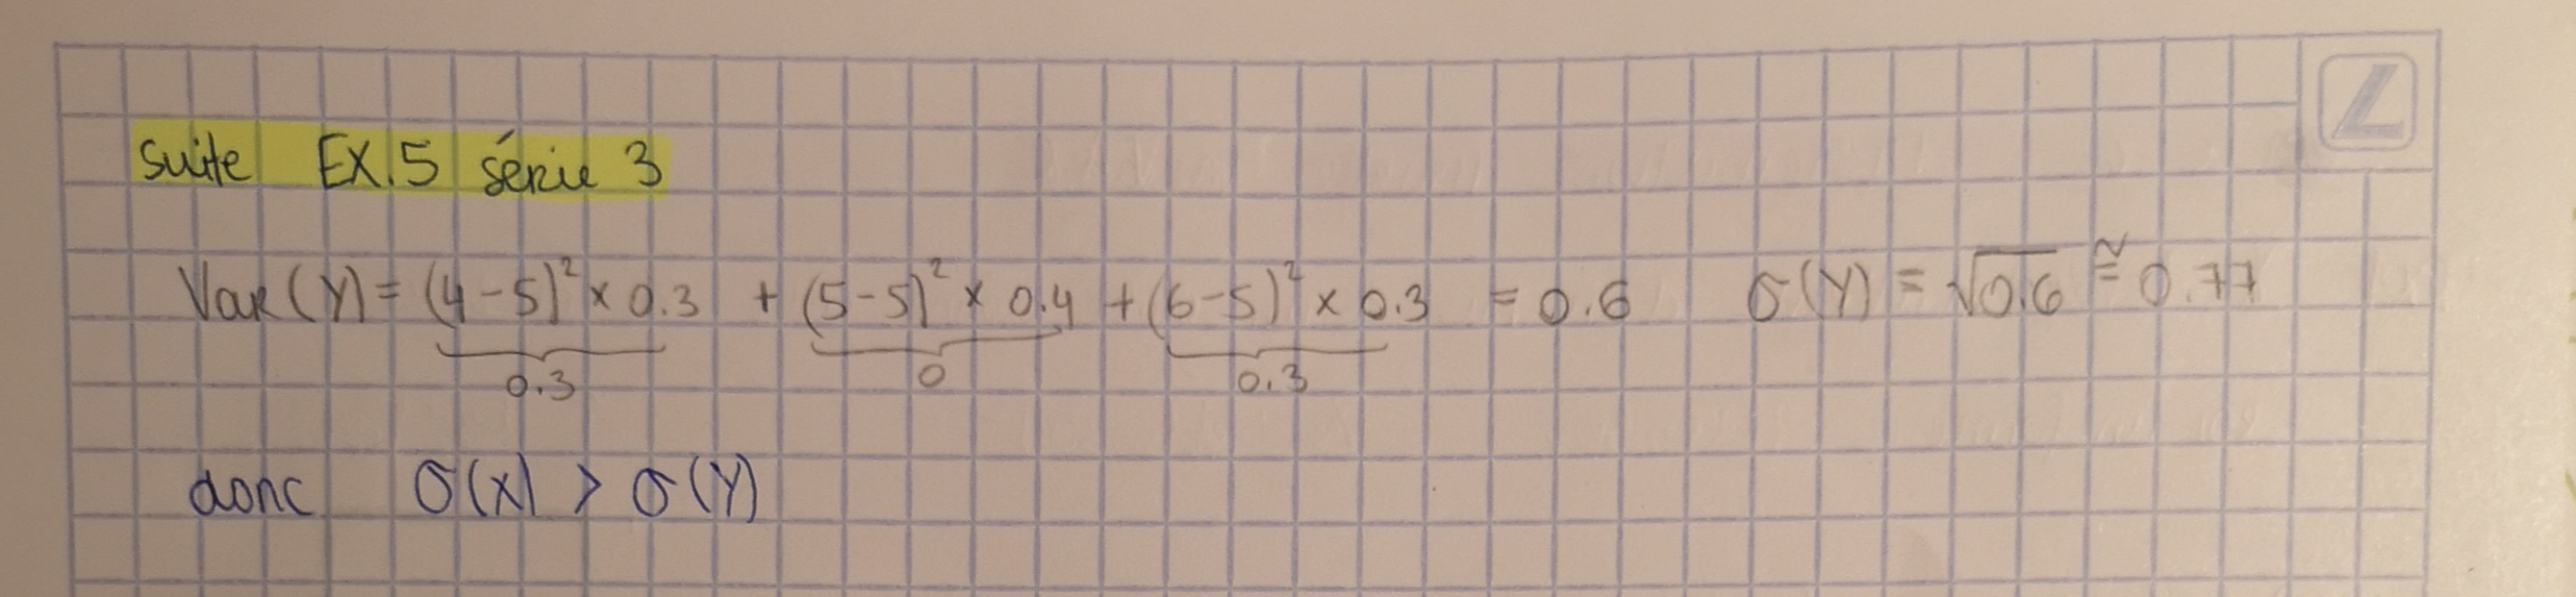 suite EX.5 série 3
Var(Y) = (4-5)² × 0.3 + (5-5)² × 0.4 + (6-5)² × 0.3 = 0.6 σ(Y) = √0.6 ≅ 0.77
0.3 0 0.3
donc σ(X) > σ(Y)